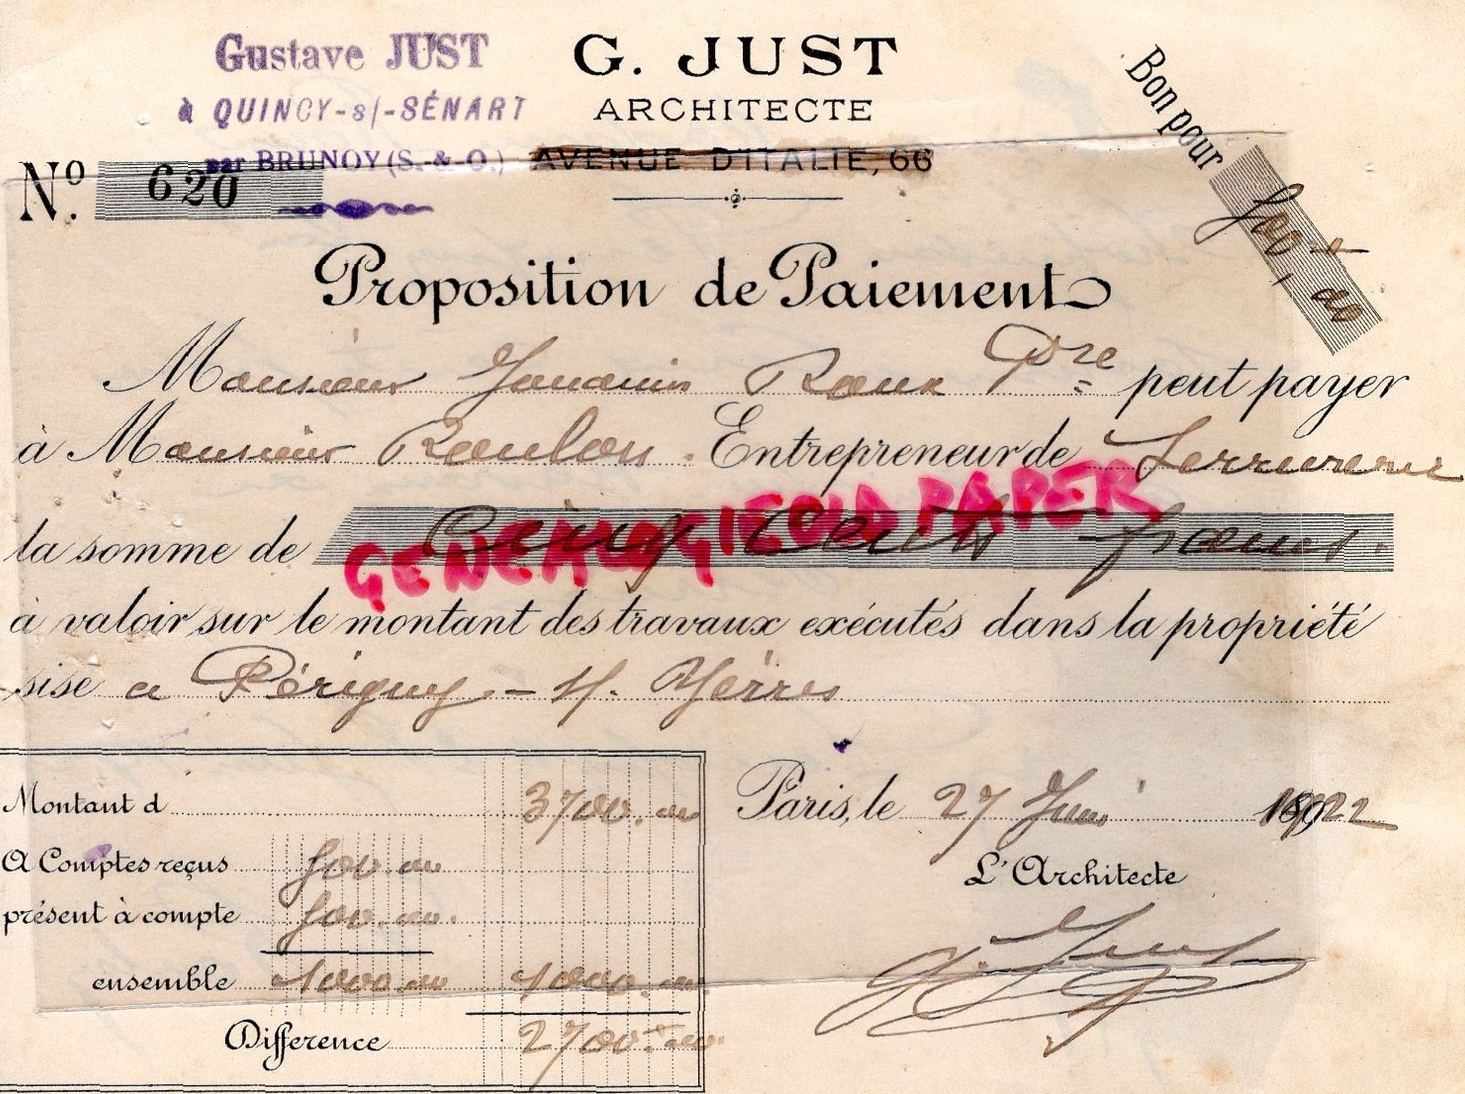 Gustave JUST
à QUINCY-s/-SÉNART
par BRUNOY (S.-&-O.)
G. JUST
ARCHITECTE
AVENUE D'ITALIE, 66
Bon pour
500, 00
Nº. 620
Proposition de Paiement
Monsieur Roux Pre peut payer
à Monsieur Entrepreneur de Serrurerie
la somme de Cinq Cents francs.
GENEALOGIEOLD PAPER
à valoir sur le montant des travaux exécutés dans la propriété
sise a Périgny - s/. Yerres
Montant d 3700. 00
A Comptes reçus 500. 00
présent à compte 500. 00.
ensemble 1000. 00 1000. 00.
Différence 2700. 00.
Paris, le 27 Juin 1922
L'Architecte
G. Just